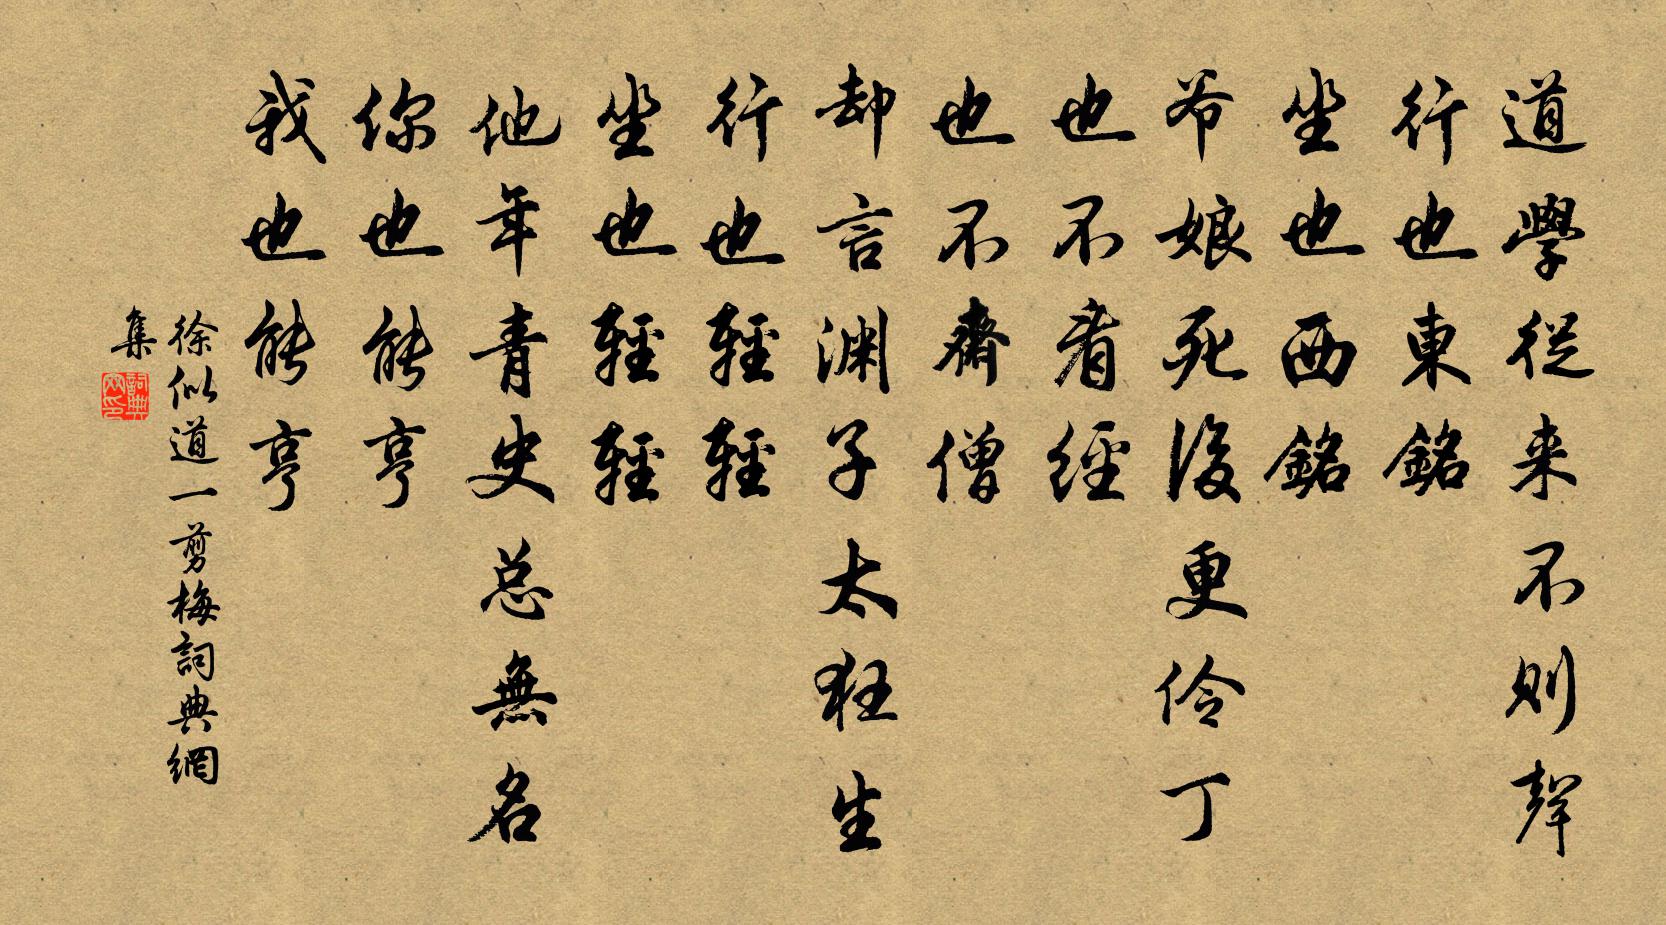 道學從来不則聲
行也東銘
坐也西銘
爷娘死後更伶丁
也不看經
也不齋僧
却言渊子太狂生
行也輕輕
坐也輕輕
他年青史总無名
你也能亨
我也能亨
徐似道一剪梅詞典網
集
詞典
网印